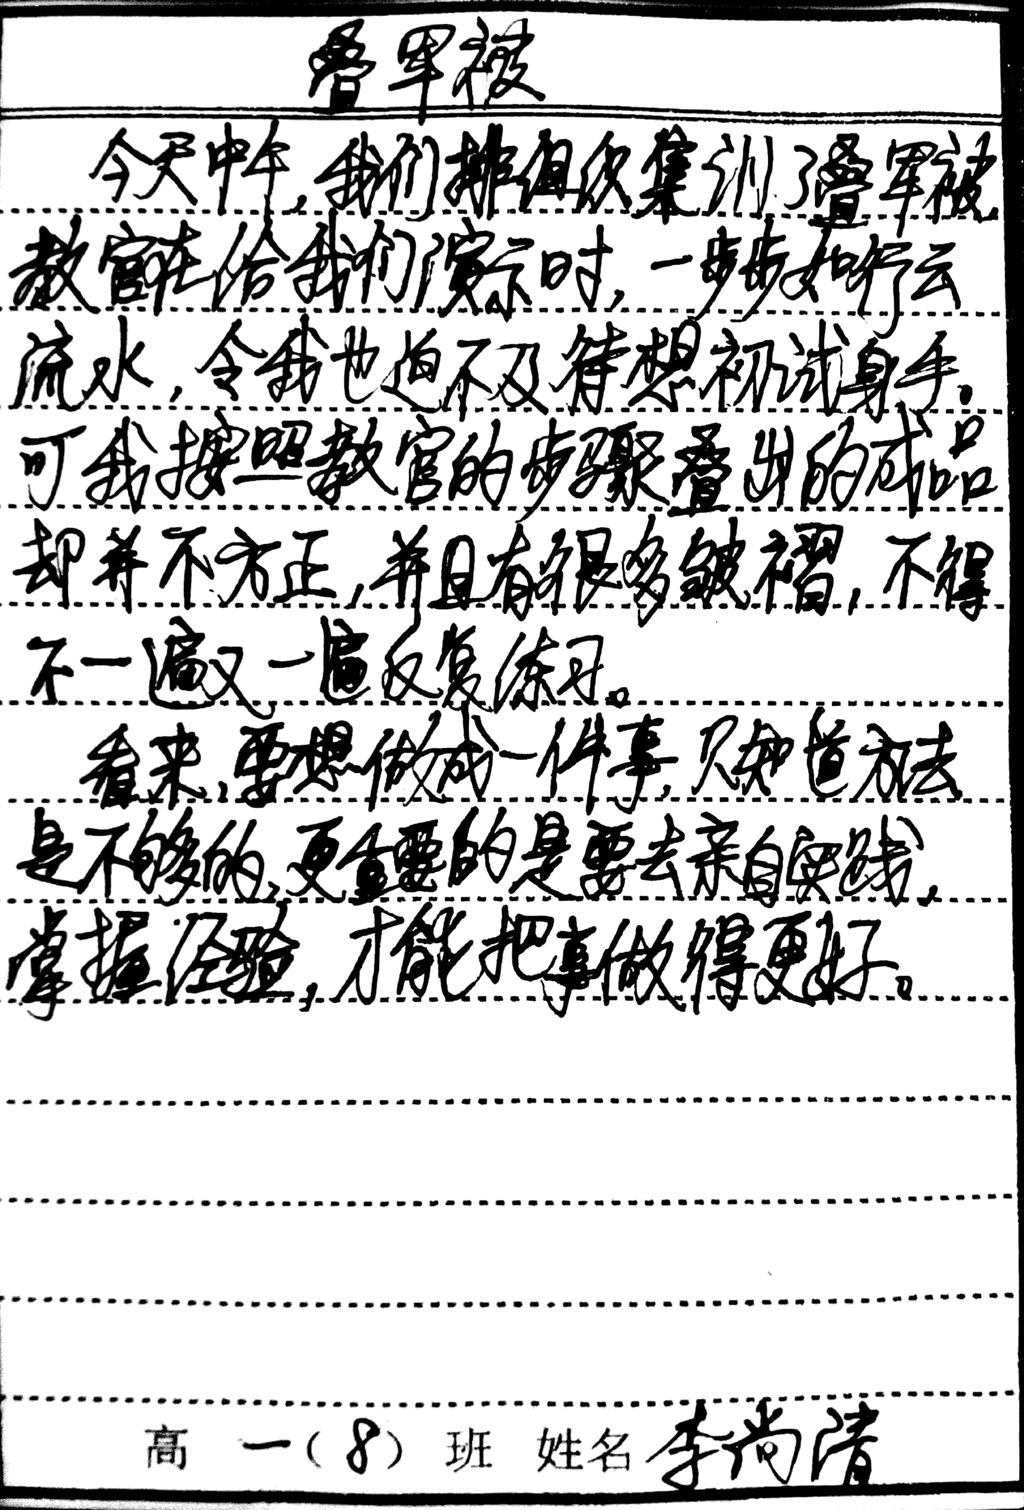 叠军被
今天中午,我们排组织集训了叠军被
教官在给我们演示时,一步步如行云
流水,令我也迫不及待想初试身手。
可我按照教官的步骤叠出的成品
却并不方正,并且有很多皱褶,不得
不一遍又一遍反复练习。
看来,要想做成一件事,只知道方法
是不够的,更重要的是要去亲自实践,
掌握经验,才能把事做得更好。
高一(8)班 姓名 李尚清